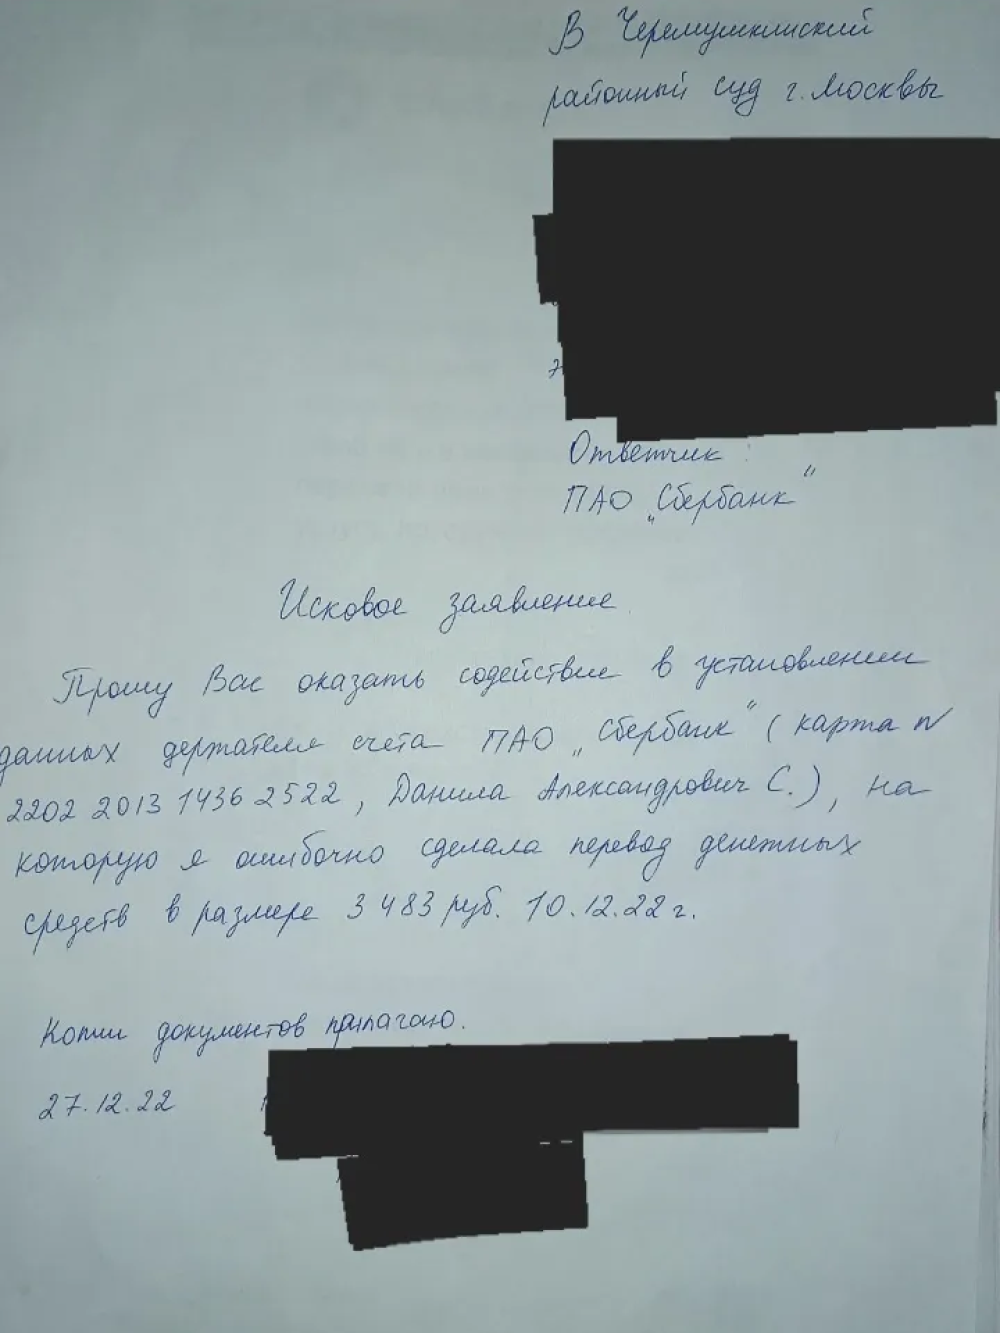 В Черемушкинский
районный суд г. Москвы
Ответчик :
ПАО „Сбербанк“
Исковое заявление
Прошу Вас оказать содействие в установлении
данных держателя счета ПАО „Сбербанк“ (карта №
2202 2013 1436 2522, Данила Александрович С.), на
которую я ошибочно сделала перевод денежных
средств в размере 3 483 руб. 10.12.22 г.
Копии документов прилагаю.
27.12.22